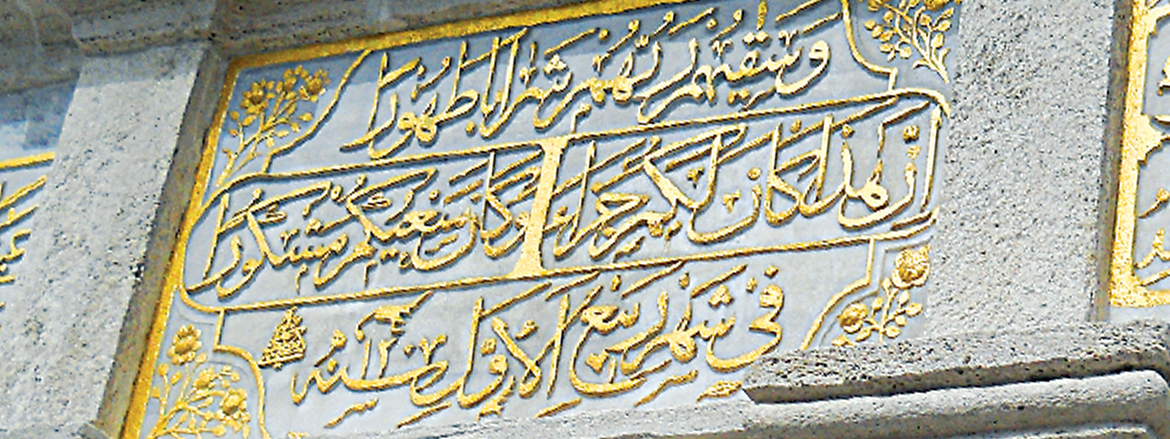 وسقيهم ربهم شرابا طهورا
ان هذا كان لكم جزاء وكان سعيكم مشكورا
فى شهر ربيع الاول سنه